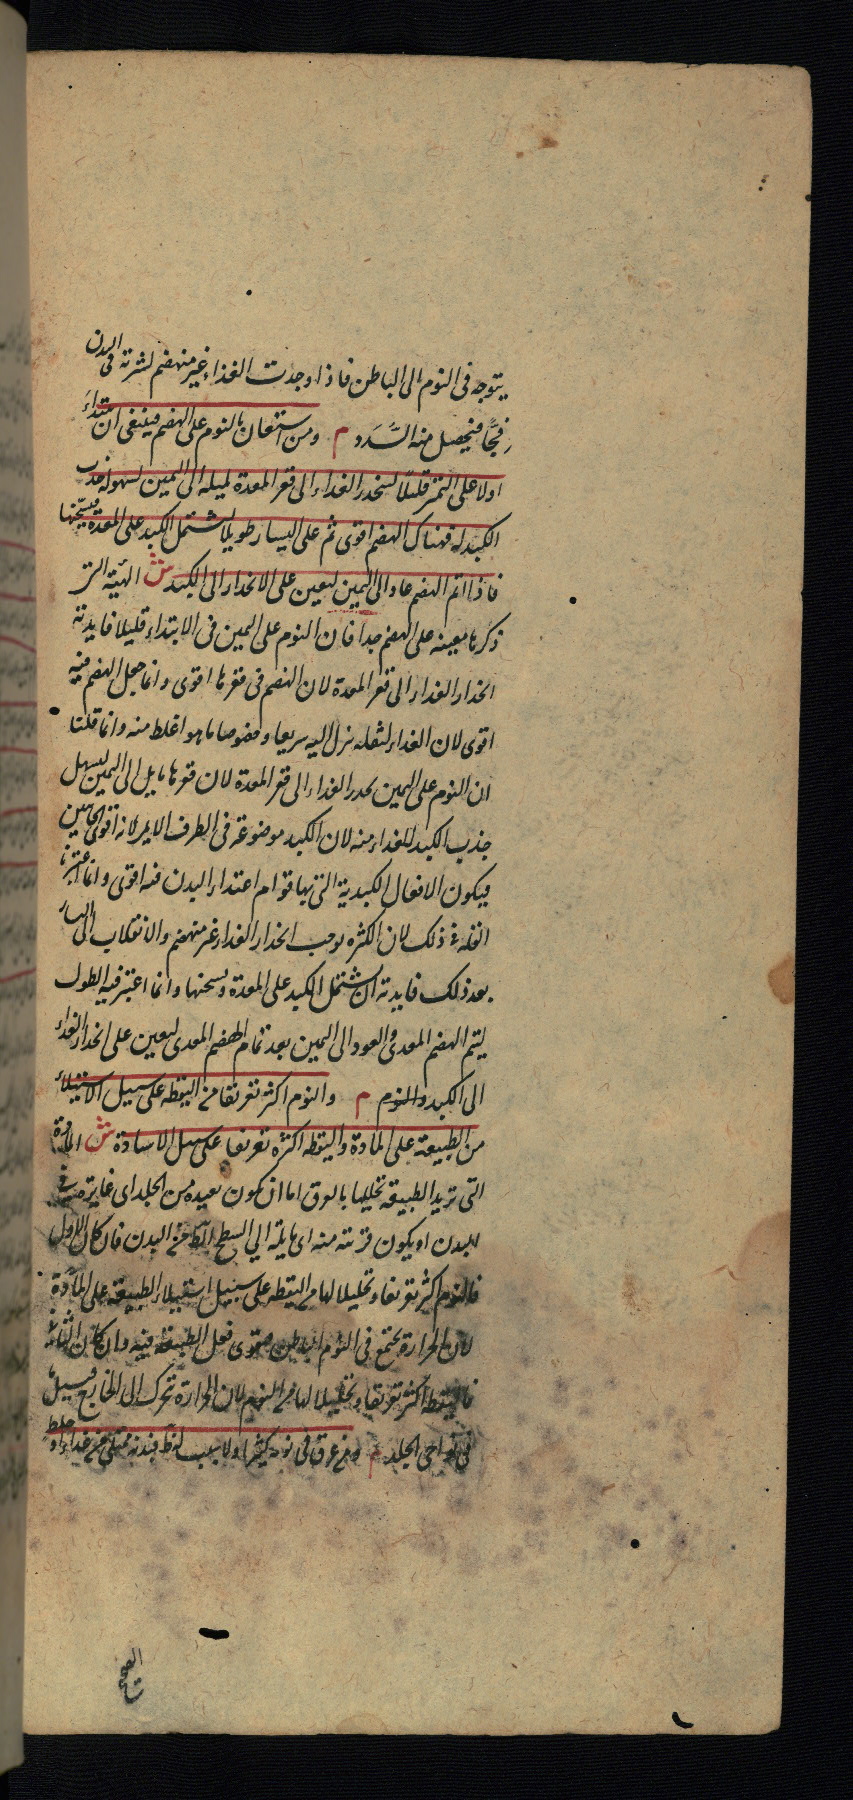 يتوجه فى النوم الى الباطن فاذا وجدت الغذاء غير منهضم نشرته فى البدن
فجًا فيحصل منه السَّدد م ومن استعان بالنوم على الهضم فينبغى ان يبتداء
اولا على اليمين قليلا لينحدر الغذاء الى قعر المعدة لميله الى اليمين لسهولة جذب
الكبد له فهناك الهضم اقوى ثم على اليسار طويلا ليشتمل الكبد على المعدة فيسخنها
فاذا اتم الهضم عاد الى اليمين ليعين على الانحدار الى الكبد ش الهيئة التى
ذكرها معينه على الهضم جدا فان النوم على اليمين فى الابتداء قليلا فايدته
انحدار الغذاء الى قعر المعدة لان الهضم فى قعرها اقوى وانما جعل الهضم فيه
اقوى لان الغذاء لثقله ينزل اليه سريعا وخصوصا ما هو اغلظ منه وانما قلنا
ان النوم على اليمين يحدر الغذاء الى قعر المعدة لان قعرها مايل الى اليمين ليسهل
جذب الكبد للغذاء منه لان الكبد موضوعة فى الطرف الايمن لانه اقوى الجانبين
فيكون الافعال الكبدية التى بها قوام اعتداء البدن فيه اقوى وانما اعتبرنا
القلة فى ذلك لان الكثرة يوجب انحدار الغذاء غير منهضم والانقلاب الى اليسار
بعد ذلك فايدته ان يشتمل الكبد على المعدة ويسخنها وانما اعتبر فيه الطول
ليتم الهضم المعدى والعود الى اليمين بعد تمام الهضم المعدى ليعين على انحدار الغذاء
الى الكبد والنوم م والنوم اكثر تعريقا من اليقظه على سبيل الاستيلاء
من الطبيعة على المادة واليقظه اكثر تعريقا على سبيل الاسالة ش المادة
التى تريد الطبيعة تحليلها بالعرق اما ان يكون بعيده من الجلد اى غايرة فى
البدن او يكون قريبة منه اى مايلة الى السطح الظاهر من البدن فان كان الاول
فالنوم اكثر تعريقا وتحليلا لها من اليقظه على سبيل استيلاء الطبيعة على المادة
لان الحرارة يجتمع فى النوم الباطن فيقوى فعل الطبيعة فيه وان كان الثانى
فاليقظه اكثر تعريقا وتحليلا لها من النوم لان الحرارة تتحرك الى الخارج فيسيل
فى نواحى الجلد م ومن عرق فى نومه كثيرا ولا سبب لذلك فبدنه ممتلئ من غذاء او خلط